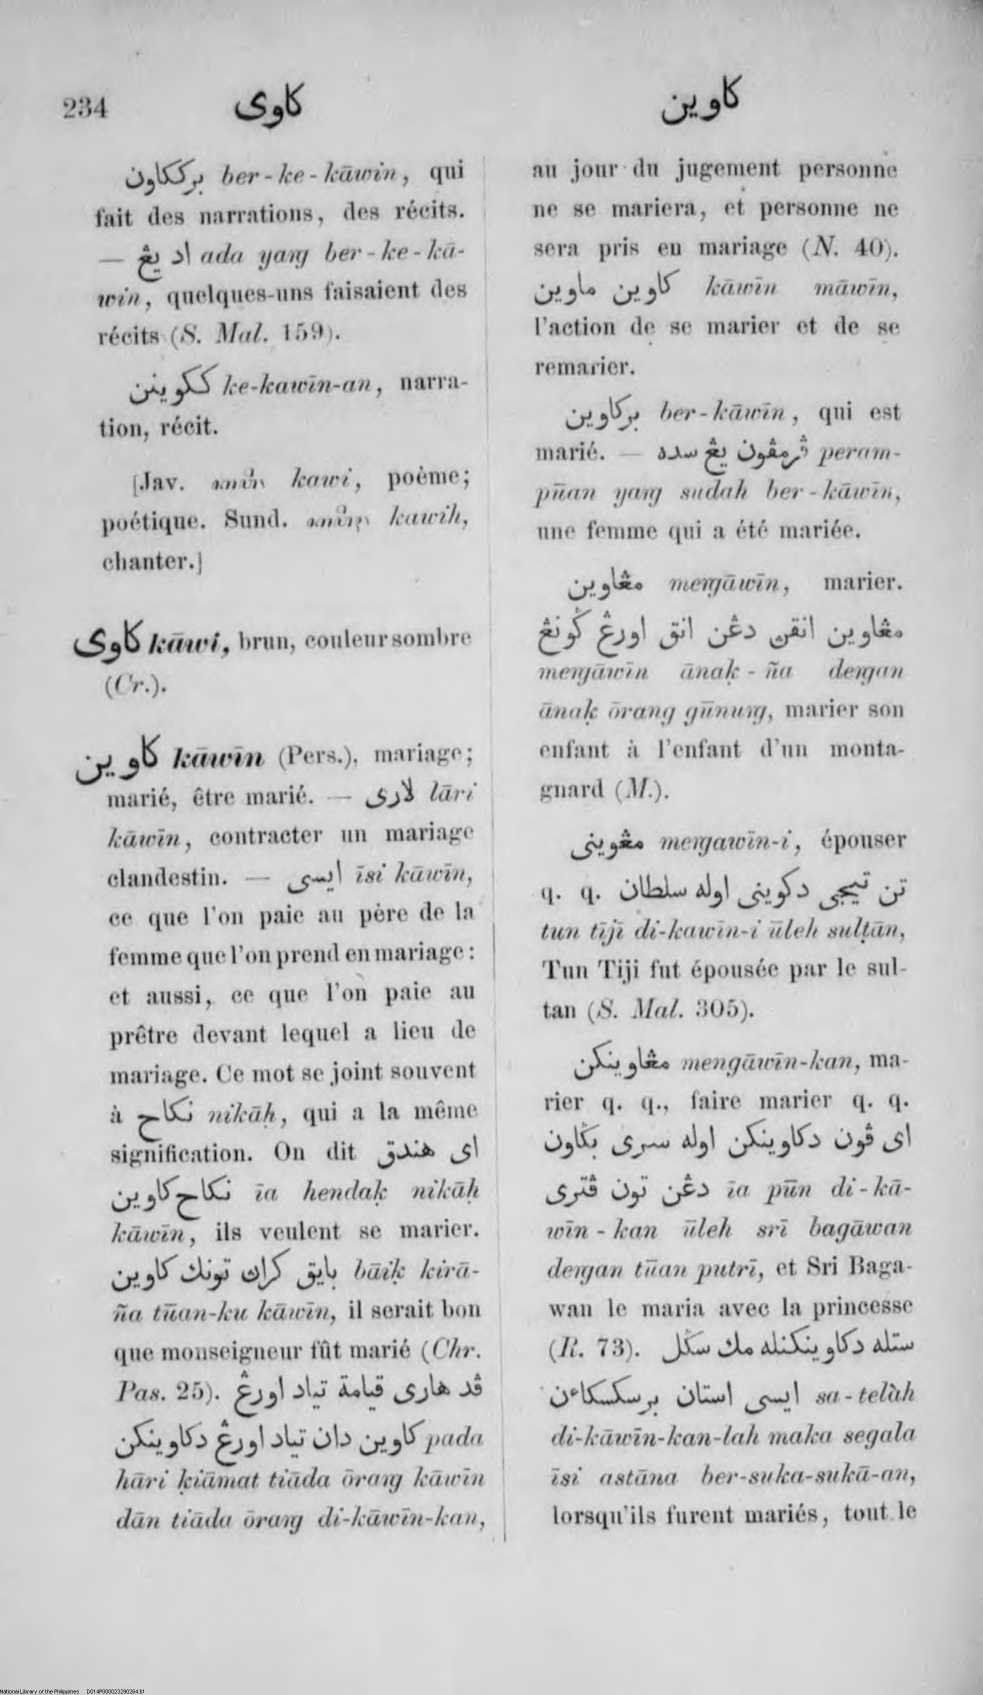 234
كاوى
كاوين
برككاون ber-ke-kāwin, qui
fait des narrations, des récits.
— اد يڠ ada yaŋg ber-ke-kā-
win, quelques-uns faisaient des
récits (S. Mal. 159).
ككوينن ke-kawīn-an, narra-
tion, récit.
[Jav. kawi, poème;
poétique. Sund. kawih,
chanter.]
كاوى kāwi, brun, couleur sombre
(Cr.).
كاوين kāwīn (Pers.), mariage;
marié, être marié. — لارى lāri
kāwīn, contracter un mariage
clandestin. — ايسى īsi kāwīn,
ce que l'on paie au père de la
femme que l'on prend en mariage:
et aussi, ce que l'on paie au
prêtre devant lequel a lieu de
mariage. Ce mot se joint souvent
à نكاح nikāḥ, qui a la même
signification. On dit اى هندق
نكاح كاوين īa hendaḳ nikāḥ
kāwīn, ils veulent se marier.
بايق كراڽ تونك كاوين bāiḳ kirā-
ña tūan-ku kāwīn, il serait bon
que monseigneur fût marié (Chr.
Pas. 25). ڤد هارى قيامة تياد اورڠ
كاوين دان تياد اورڠ دكاوينكن pada
hāri ḳiāmat tiāda ōraŋg kāwīn
dān tiāda ōraŋg di-kāwīn-kan,
au jour du jugement personne
ne se mariera, et personne ne
sera pris en mariage (N. 40).
كاوين ماوين kāwīn māwīn,
l'action de se marier et de se
remarier.
بركاوين ber-kāwīn, qui est
marié. — ڤرمڤون يڠ سده peram-
pūan yaŋg sudah ber-kāwīn,
une femme qui a été mariée.
مڠاوين meŋgāwīn, marier.
مڠاوين انقڽ دڠن انق اورڠ ݢونڠ
meŋgāwīn ānaḳ-ña deŋgan
ānaḳ ōrang gūnuŋg, marier son
enfant à l'enfant d'un monta-
gnard (M.).
مڠوينى meŋgawīn-i, épouser
q. q. تن تيجى دكوينى اوله سلطان
tun tījī di-kawīn-i ūleh sulṭān,
Tun Tiji fut épousée par le sul-
tan (S. Mal. 305).
مڠاوينكن mengāwīn-kan, ma-
rier q. q., faire marier q. q.
اى ڤون دكاوينكن اوله سرى بݢاون
دڠن تون ڤترى īa pūn di-kā-
wīn-kan ūleh srī bagāwan
deŋgan tūan putrī, et Sri Baga-
wan le maria avec la princesse
(R. 73). ستله دكاوينكنله مك سݢل
ايسى استان برسكسكاءن sa-telàh
di-kāwīn-kan-lah maka segala
īsi astāna ber-suka-sukā-an,
lorsqu'ils furent mariés, tout le
National Library of the Philippines